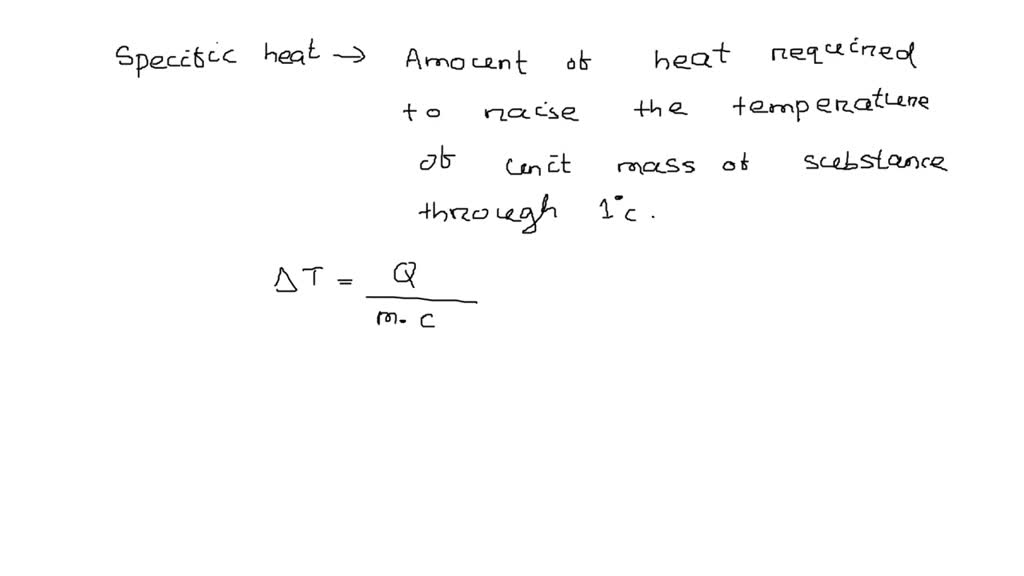 Specific heat → Amount of heat required
to raise the temperature
of unit mass of substance
through 1°c.
ΔT = Q
m. c